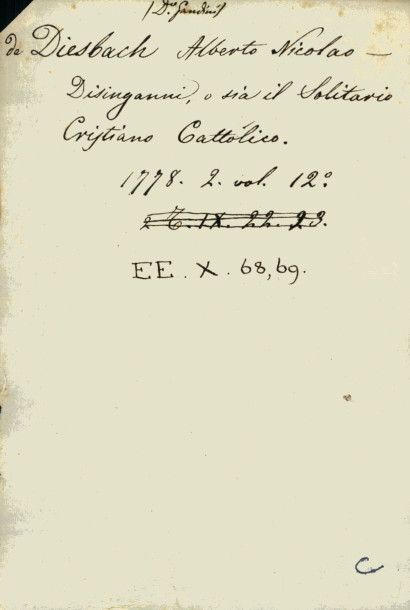 (D.r Gandini)
de Diesbach Alberto Nicolao —
Disinganni, o sia il Solitario
Cristiano Cattólico.
1778. 2. vol. 12.°
EE. X. 68,69.
C